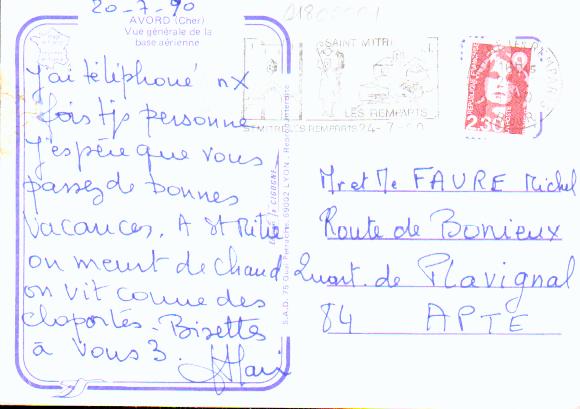 20-7-90
AVORD (Cher)
Vue générale de la
base aérienne
J'ai téléphoné nX
fois tjs personne
J'espère que vous
passez de bonnes
vacances. A St Mitre
on meurt de chaud
on vit comme des
cloportes. Bisettes
à vous 3.
S.A.D. 75 Quai Perrache, 69002 LYON - Reprod. interdite
SAINT MITRE
LES REMPARTS
ST MITRE LES REMPARTS 24-7-90
REPUBLIQUE FRANÇAISE
2,30
Mr et Me FAURE Michel
Route de Bonieux
Quart. de Flavignal
84 APTE